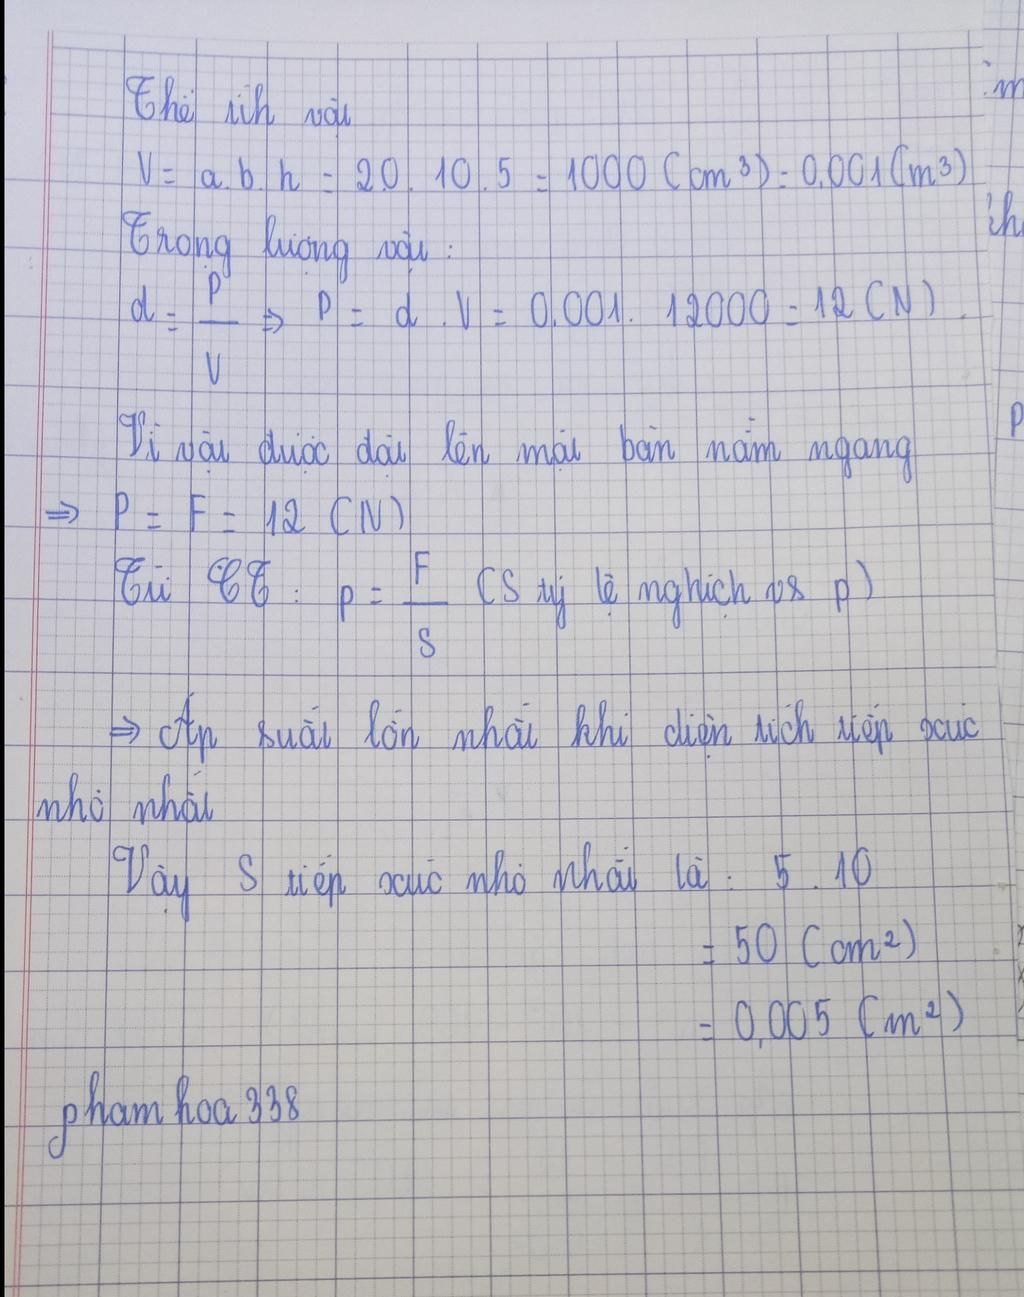 Thể tích vật
V = a.b.h = 20.10.5 = 1000 (cm³) = 0,001 (m³)
Trọng lượng vật:
d = P/V ⇒ P = d.V = 0,001. 12000 = 12 (N)
Vì vật được đặt lên mặt bàn nằm ngang
⇒ P = F = 12 (N)
Từ CT: p = F/S (S tỷ lệ nghịch vs p)
⇒ Áp suất lớn nhất khi diện tích tiếp xúc
nhỏ nhất
Vậy S tiếp xúc nhỏ nhất là: 5.10
= 50 (cm²)
= 0,005 (m²)
phamhoa338